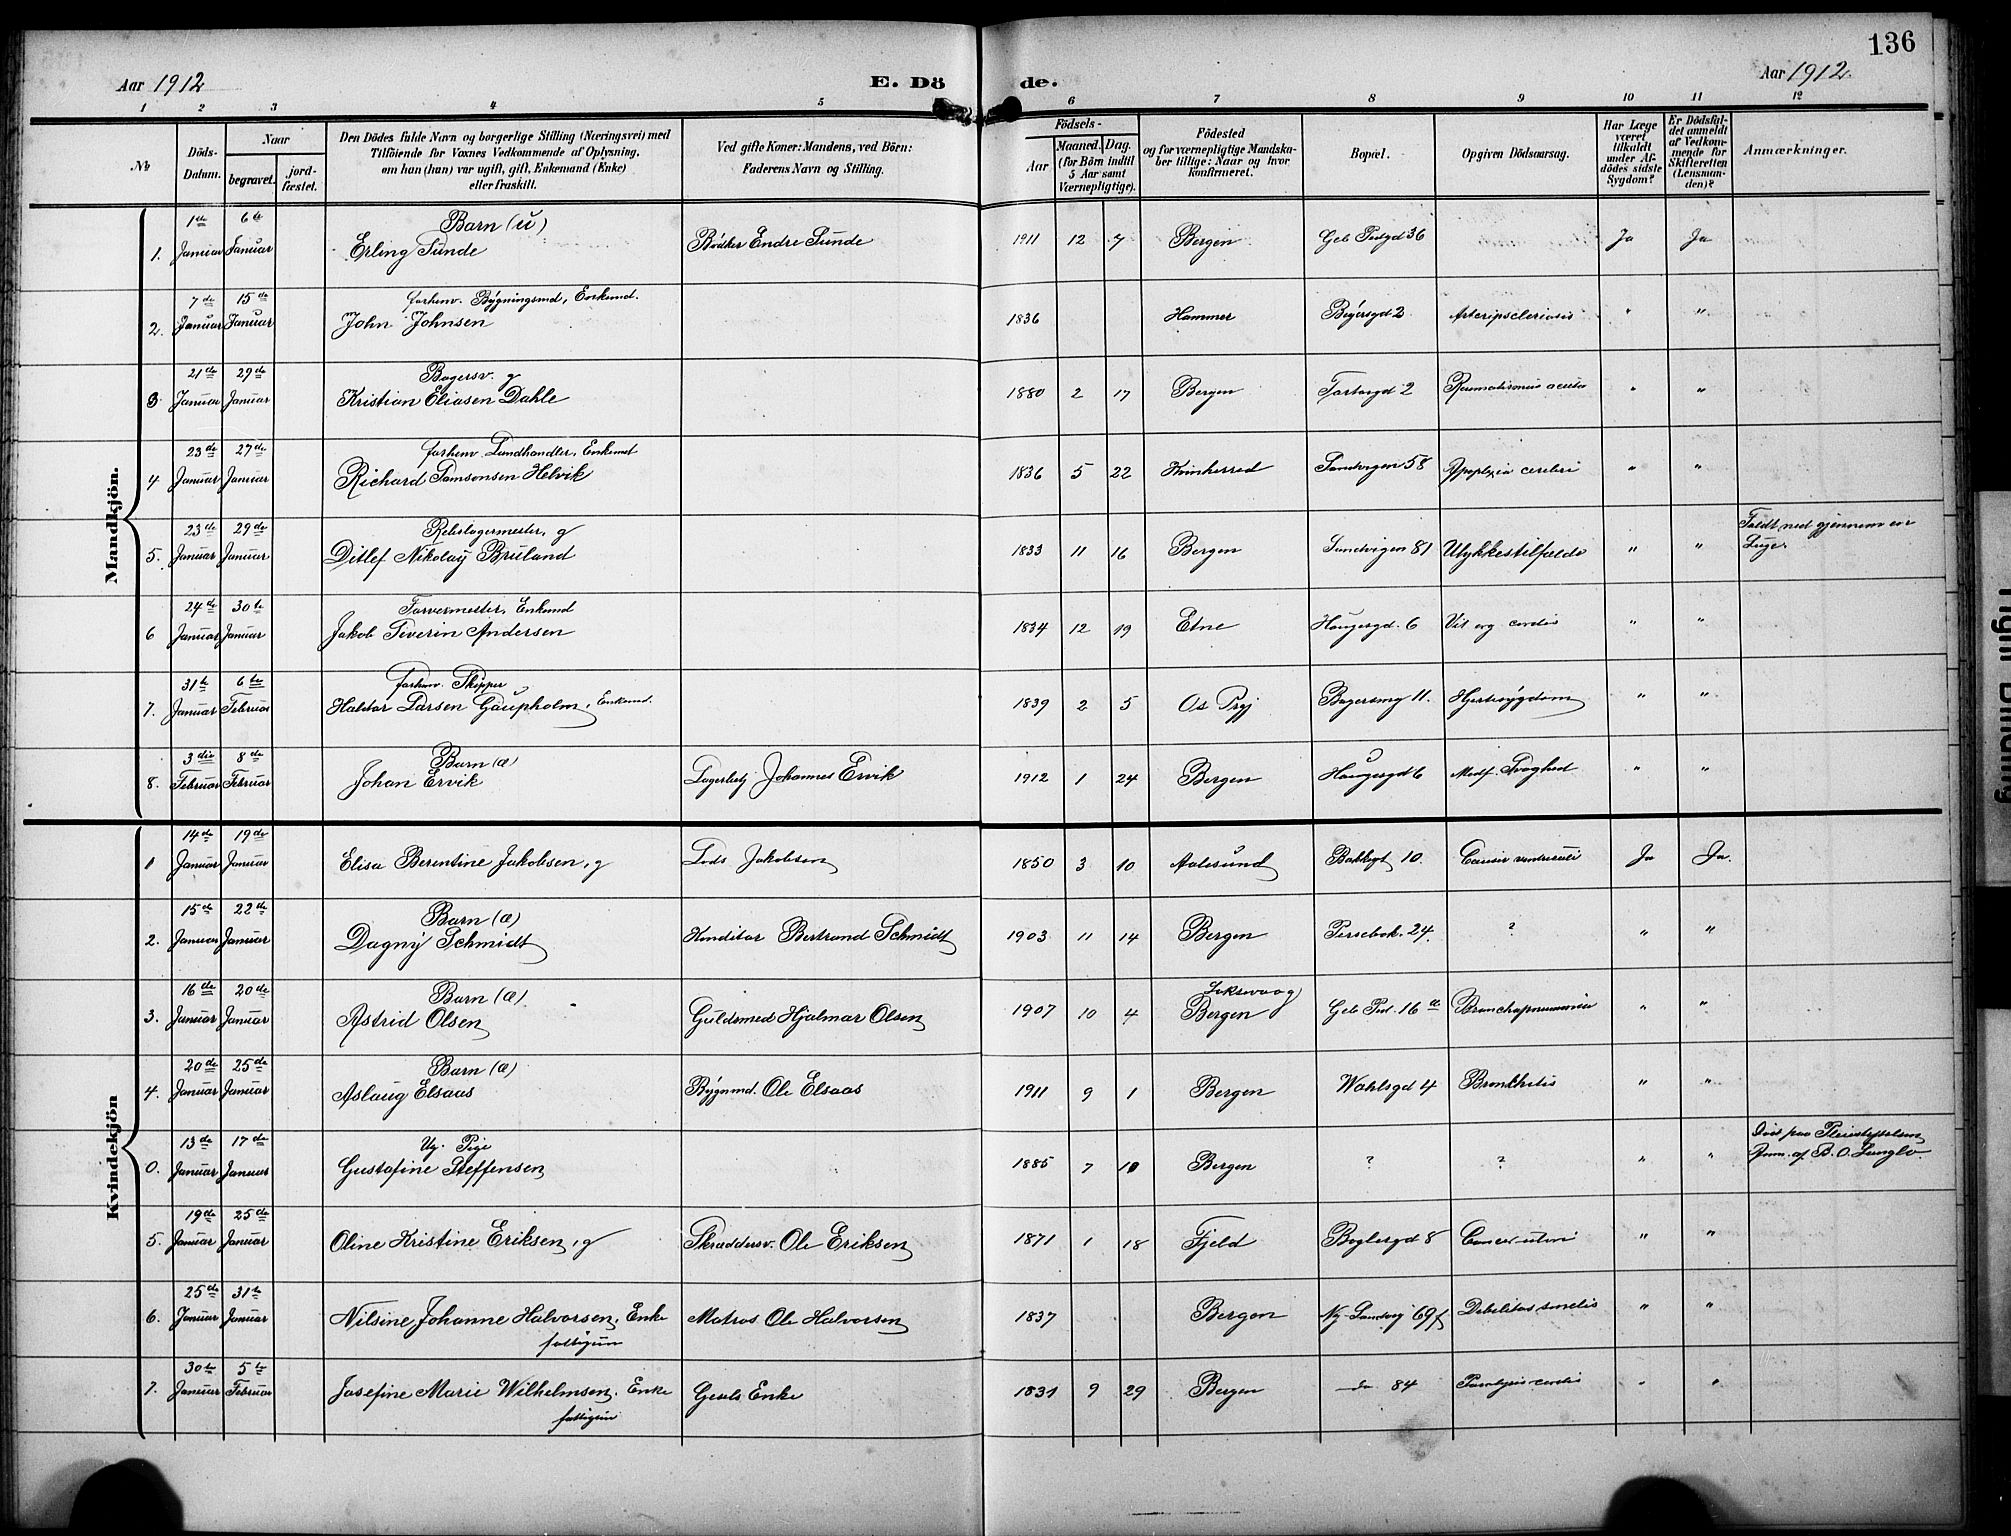 136
Aar 1912
E. Dö de.
Aar 1912.
1 2 3 4 5 6 7 8 9 10 11 12
No
Döds-Datum.
Naar
begravet.
jord-fæstet.
Den Dödes fulde Navn og borgerlige Stilling (Næringsvei) med
Tilföiende for Voxnes Vedkommende af Oplysning,
om han (hun) var ugift, gift, Enkemand (Enke)
eller fraskilt.
Ved gifte Koner: Mandens, ved Börn:
Faderens Navn og Stilling.
Födsels-
Aar
Maaned. Dag.
(for Börn indtil
5 Aar samt
Værnepligtige).
Födested
og for værnepligtige Mandska-
ber tillige: Naar og hvor
konfirmeret.
Bopæl.
Opgiven Dödsaarsag.
Har Læge
været
tilkaldt
under Af-
dödes sidste
Sygdom?
Er Dödsfal-
det anmeldt
af Vedkom-
mende for
Skifteretten
(Lensman-
den)?
Anmærkninger.
Mandkjön.
1. 1de Januar 6te Januar Barn (u)
Erling Sunde Bödker Endre Sunde 1911 12 7 Bergen 36 Ja Ja
2. 7de Januar 15de Januar forhenv. Bygningsmd, Enkemd.
John Johnsen 1836 Hammer 2 " "
3. 21de Januar 29de Januar Bagersv. g
Kristian Eliasen Dahle 1880 2 17 Bergen 2 " "
4 23de Januar 27de Januar forhenv. Landhandler, Enkemd
Richard Samsonsen Helvik 1836 5 22 Kvinherred Sandvigen 58 Apoplexia cerebri " "
5. 23de Januar 29de Januar Rebslagermester, g
Ditlef Nikolay Bruland 1833 11 16 Bergen Sandvigen 81 Ulykkestilfælde " " Faldt ned gjennem en
Luge.
6 24de Januar 30te Januar Farvermester, Enkemd
Jakob Severin Andersen 1834 12 19 Etne Haugesgd. 6 Vit org cordis " "
7. 31te Januar 6te Februar forhenv. Skipper
Haldor Larsen Gaupholm, Enkemd. 1839 2 5 Os Prgj 11. Hjertesygdom " "
8. 3die Februar 8de Februar Barn (æ)
Johan Ervik Lagerbetj Johannes Ervik 1912 1 24 Bergen Haugesgd 6 Medf. Svaghed " "
Kvindekjön
1 14de Januar 19de Januar Elisa Berentine Jakobsen, g Lods Jakobsen 1850 3 10 Aalesund 10. Cancer ventriculi Ja Ja.
2. 15de Januar 22de Januar Barn (æ)
Dagny Schmidt Konditor Bertrand Schmidt 1903 11 14 Bergen 24. ? " "
3. 16de Januar 20de Januar Barn (æ)
Astrid Olsen Guldsmed Hjalmar Olsen 1907 10 4 Laksevaag
Bergen 16 a Bronchopneumonia " "
4. 20de Januar 25de Januar Barn (æ)
Aslaug Elsaas Bygnmd. Ole Elsaas 1911 9 1 Bergen Wahlsgd 4 Bronkhitis " "
0. 13de Januar 17de Januar Ug. Pige
Gustafine Steffensen 1885 7 10 Bergen ? ? " " Död paa Pleiestiftelsen
Anm. af
5. 19de Januar 25de Januar Oline Kristine Eriksen, g Skræddersv. Ole Eriksen 1871 1 18 Fjeld 8 Cancer uteri " "
6. 25de Januar 31te Januar Nilsine Johanne Halvorsen, Enke
fattigun Matros Ole Halvorsen 1837 Bergen Ny-Sandvig 69f Debilitas senilis " "
7. 30te Januar 5te Februar Josefine Marie Wilhelmsen. Enke
fattigun Gesels Enke 1831 9 29 Bergen do 84 Paralysis cordis " "